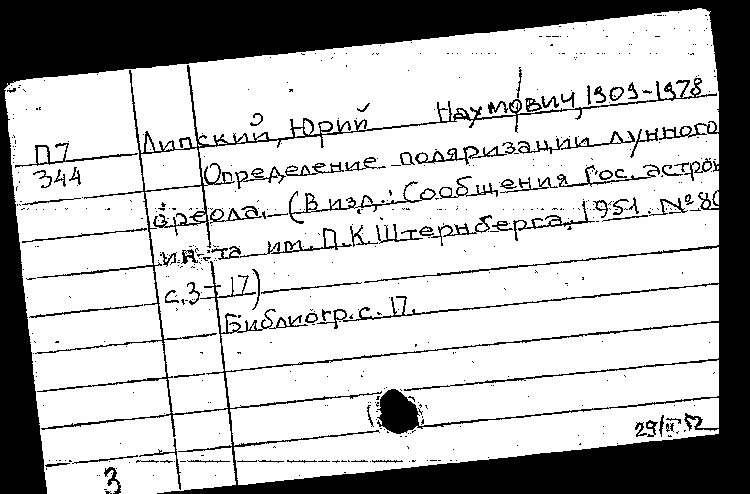 Липский, Юрий Наумович, 1909-1978
П7
344
Определение поляризации лунного
ореола. (В изд.: Сообщения Гос. астрон
ин-та им. П.К. Штернберга, 1951. № 80
с. 3-17)
Библиогр. с. 17.
29/II 52
3